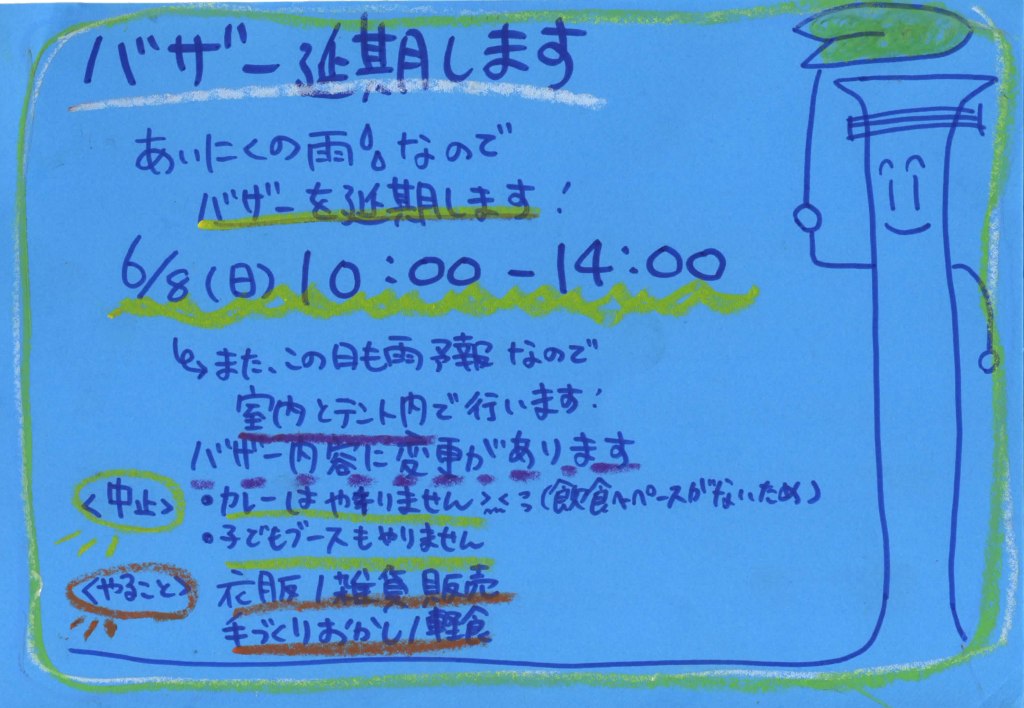 バザー延期します
あいにくの雨なので
バザーを延期します!
6/8(日)10:00-14:00
また、この日も雨予報なので
室内とテント内で行います!
バザー内容に変更があります
<中止>
・カレーはやりません(飲食スペースがないため)
・子どもブースもやりません
<やること>
衣服/雑貨販売
手づくりおかし/軽食